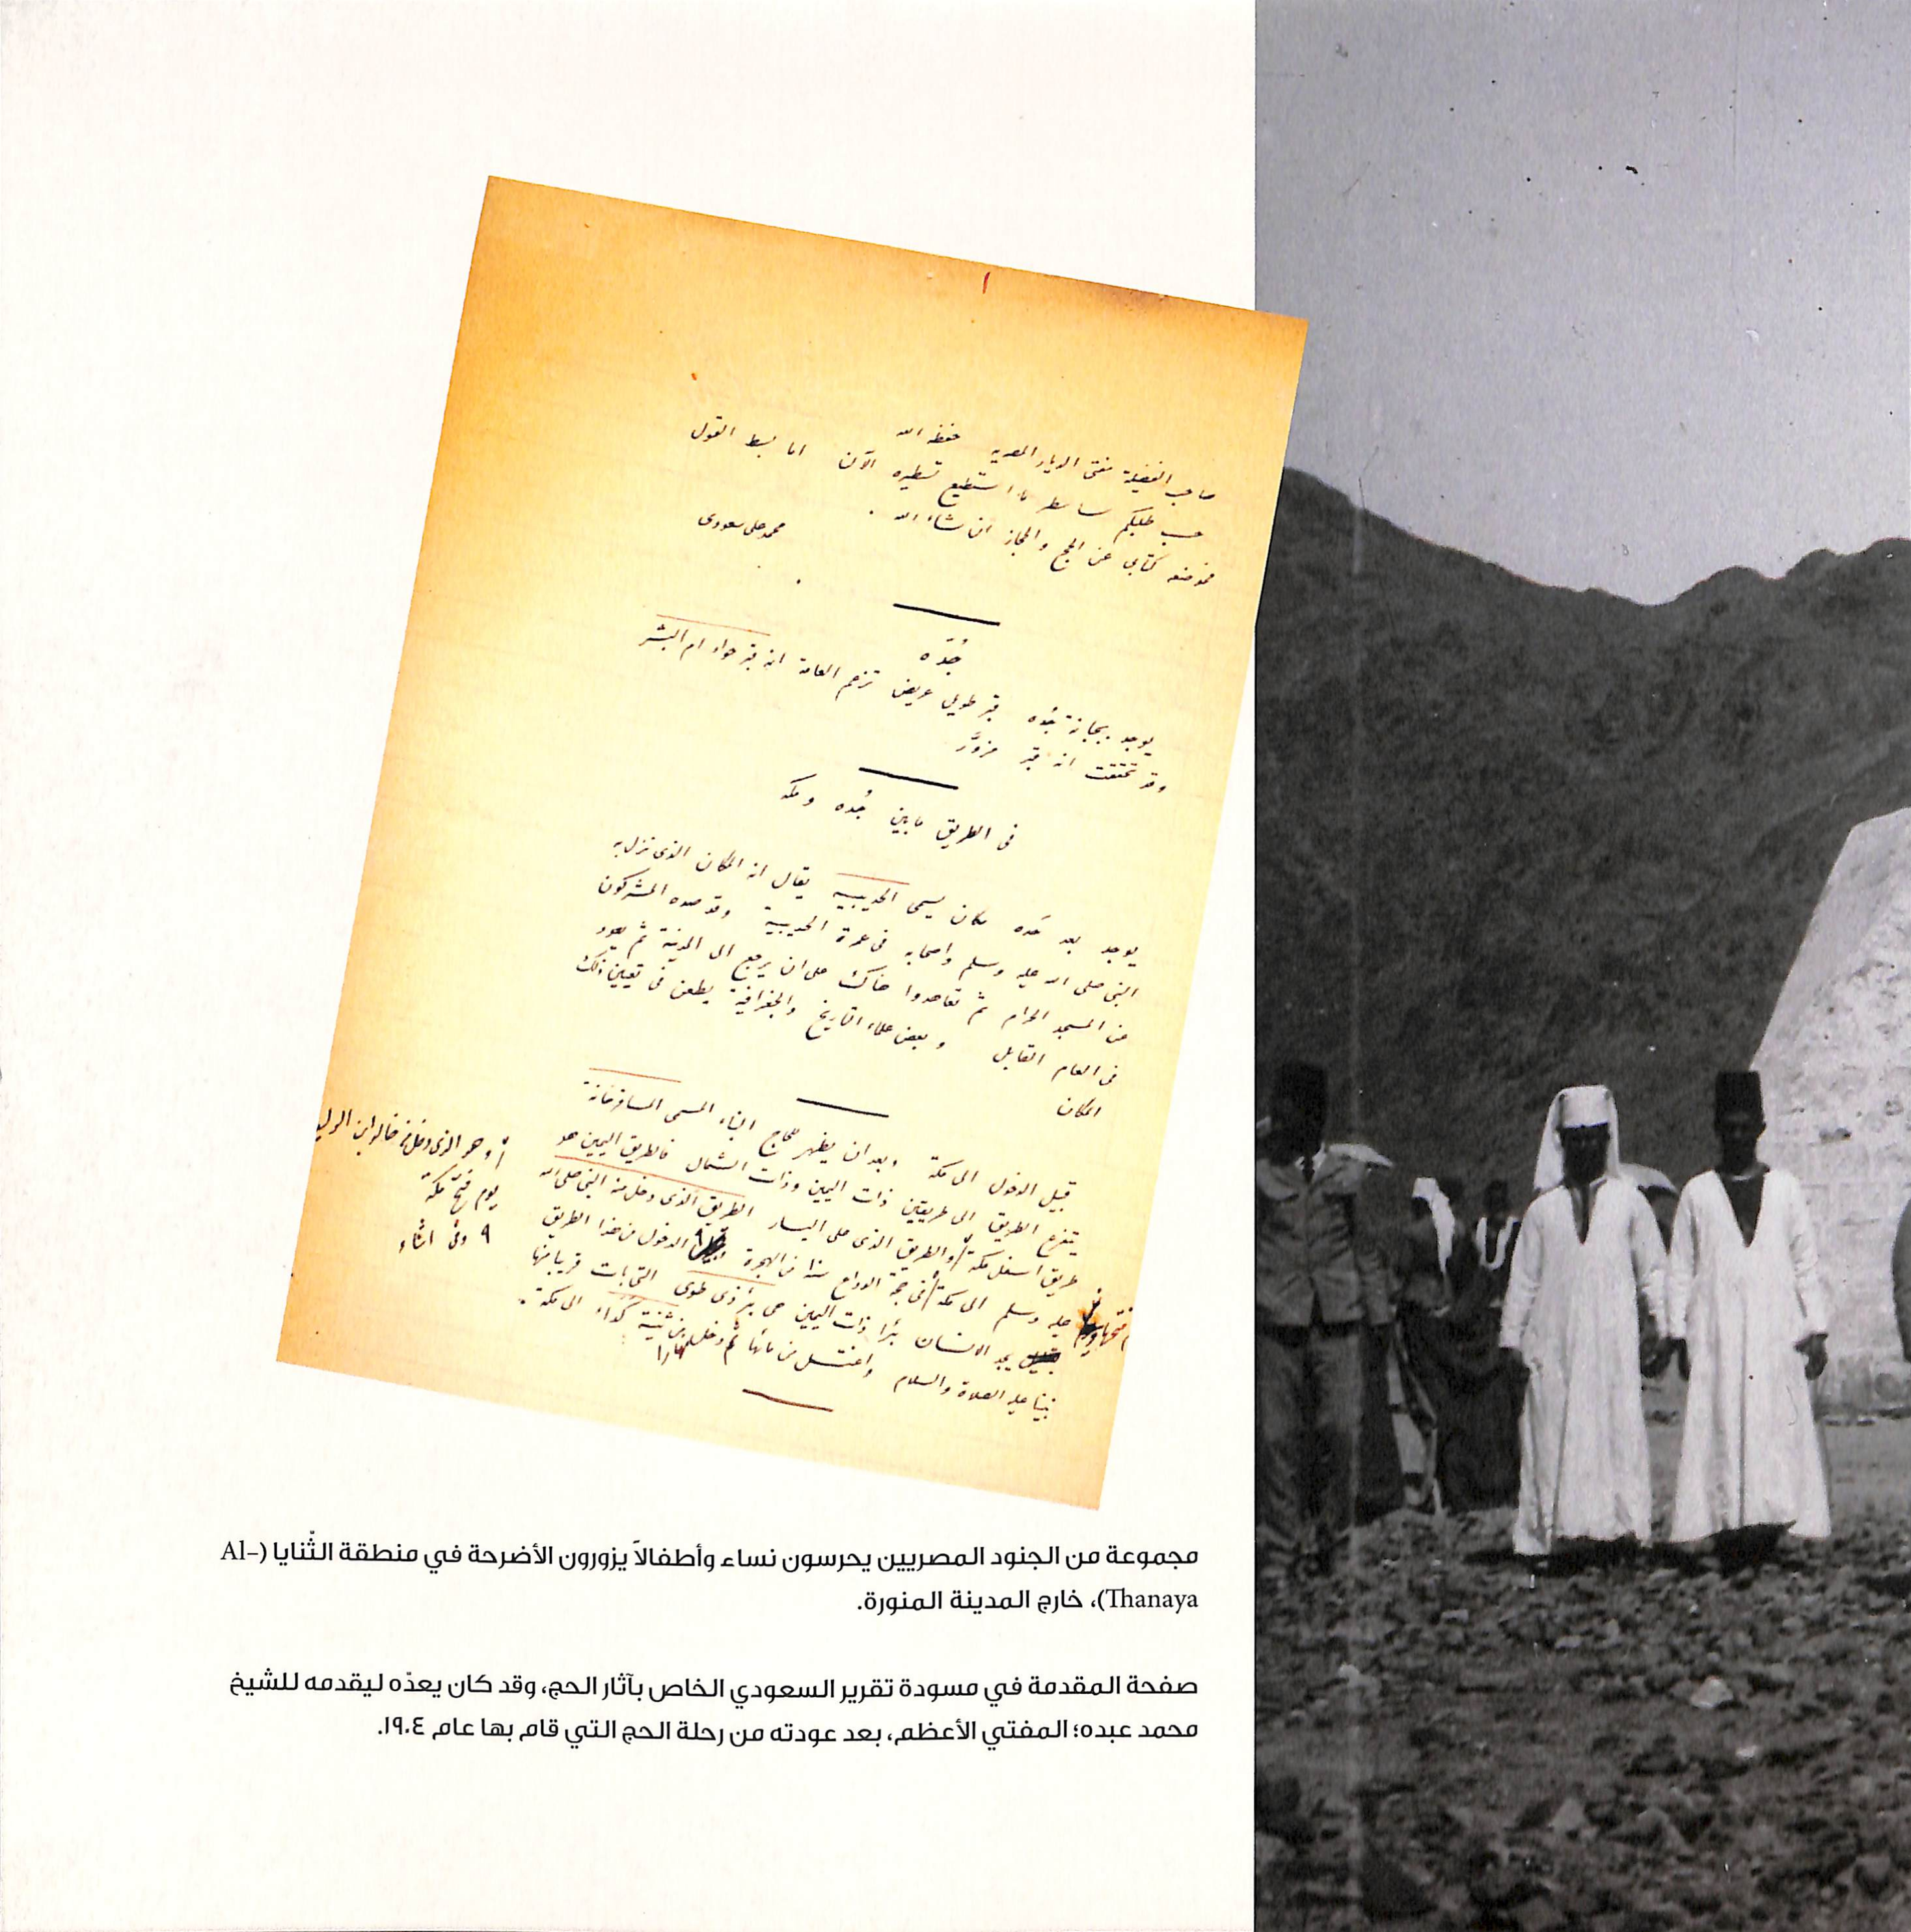 ١
صاحب الفضيلة مفتى الديار المصريه حفظه الله
حسب طلبكم سأسطر ما استطيع تسطيره الآن اما بسط القول
فموضعه كتابى عن الحج والحجاز ان شاء الله .
محمد على سعودى
جُدَّه
يوجد بجبانة جُده قبر طويل عريض تزعم العامة انه قبر حواء ام البشر
وقد تحققت انه قبر مزوَّر
فى الطريق مابين جُده ومكه
يوجد بعد حَده مكان يسمى الحديبيه يقال انه المكان الذى نزل به
النبى صلى الله عليه وسلم واصحابه فى عمرة الحديبية وقد صده المشركون
عن المسجد الحرام ثم تعاهدوا هناك على ان يرجع الى المدينة ثم يعود
فى العام القابل وبعض علماء التاريخ والجغرافية يطعن فى تعيين ذلك
المكان
قبيل الدخول الى مكة وبعد ان يظهر للحجاج البناء المسمى المسافرخانة
يتفرع الطريق الى طريقين ذات اليمين وذات الشمال فالطريق اليمين هو
طريق اسفل مكة والطريق الذى على اليسار الطريق الذى دخل منه النبى صلى الله
عليه وسلم الى مكة فى حجة الوداع سنة ١٠ من الهجرة الدخول من هذا الطريق
يجد الانسان بئرا ذات اليمين هى بئر ذى طوى التى بات قريبا منها
نبينا عليه الصلاة والسلام واغتسل من مائها ثم دخل نهارا من ثنية كَداء الى مكة .
أ وهو الذى دخل منه خالد ابن الوليد
يوم فتح مكة
٩ وفى اثناء
مجموعة من الجنود المصريين يحرسون نساء وأطفالاً يزورون الأضرحة في منطقة الثّنايا (Al-
Thanaya)، خارج المدينة المنورة.
صفحة المقدمة في مسودة تقرير السعودي الخاص بآثار الحج، وقد كان يعدّه ليقدمه للشيخ
محمد عبده؛ المفتي الأعظم، بعد عودته من رحلة الحج التي قام بها عام ١٩٠٤.